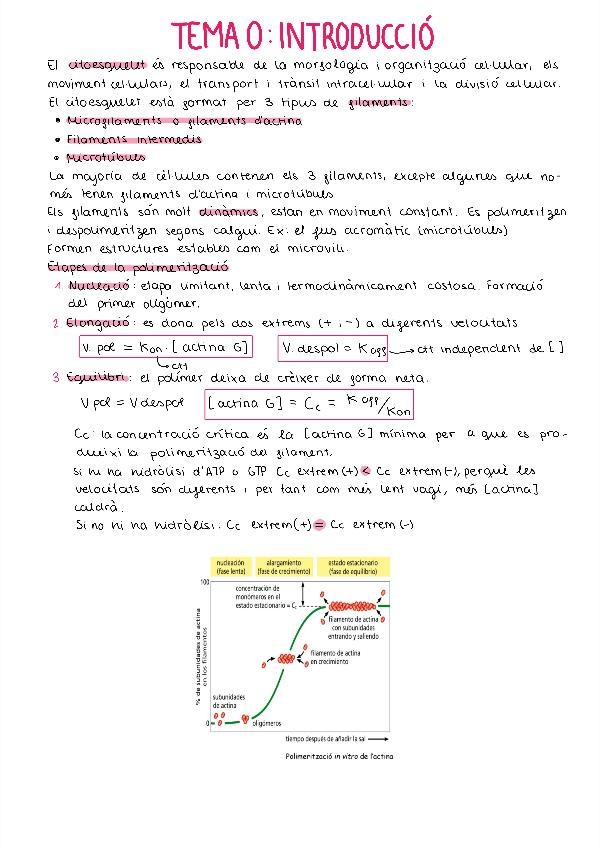 TEMA 0: INTRODUCCIÓ
El citoesquelet és responsable de la morfologia i organització cel·lular, els
moviment cel·lulars, el transport i trànsit intracel·lular i la divisió cel·lular.
El citoesquelet està format per 3 tipus de filaments:
• Microfilaments o filaments d'actina
• Filaments Intermedis
• Microtúbuls
La majoria de cèl·lules contenen els 3 filaments, excepte algunes que no-
més tenen filaments d'actina i microtúbuls
Els filaments són molt dinàmics, estan en moviment constant. Es polimeritzen
i despolimeritzen segons calgui. Ex: el fus acromàtic (microtúbuls)
Formen estructures estables com el microvilli.
Etapes de la polimerització
1 Nucleació: etapa limitant, lenta i termodinàmicament costosa. Formació
del primer oligòmer.
2 Elongació: es dona pels dos extrems (+ i -) a diferents velocitats
V. pol = Kon · [actina G] V. despol = Koff → ctt independent de [ ]
ctt
3 Equilibri: el polímer deixa de créixer de forma neta.
V pol = V despol [actina G] = Cc = Koff/Kon
Cc: la concentració crítica és la [actina G] mínima per a que es pro-
dueixi la polimerització del filament.
Si hi ha hidròlisi d'ATP o GTP Cc extrem (+) < Cc extrem (-), perquè les
velocitats són diferents i per tant com més lent vagi, més [actina]
caldrà.
Si no hi ha hidròlisi: Cc extrem (+) = Cc extrem (-)
nucleación (fase lenta) alargamiento (fase de crecimiento) estado estacionario (fase de equilibrio)
100
concentración de
monómeros en el
estado estacionario = Cc
filamento de actina
con subunidades
entrando y saliendo
filamento de actina
en crecimiento
% de subunidades de actina
en los filamentos
subunidades
de actina
0
oligómeros
tiempo después de añadir la sal →
Polimerització in vitro de l'actina